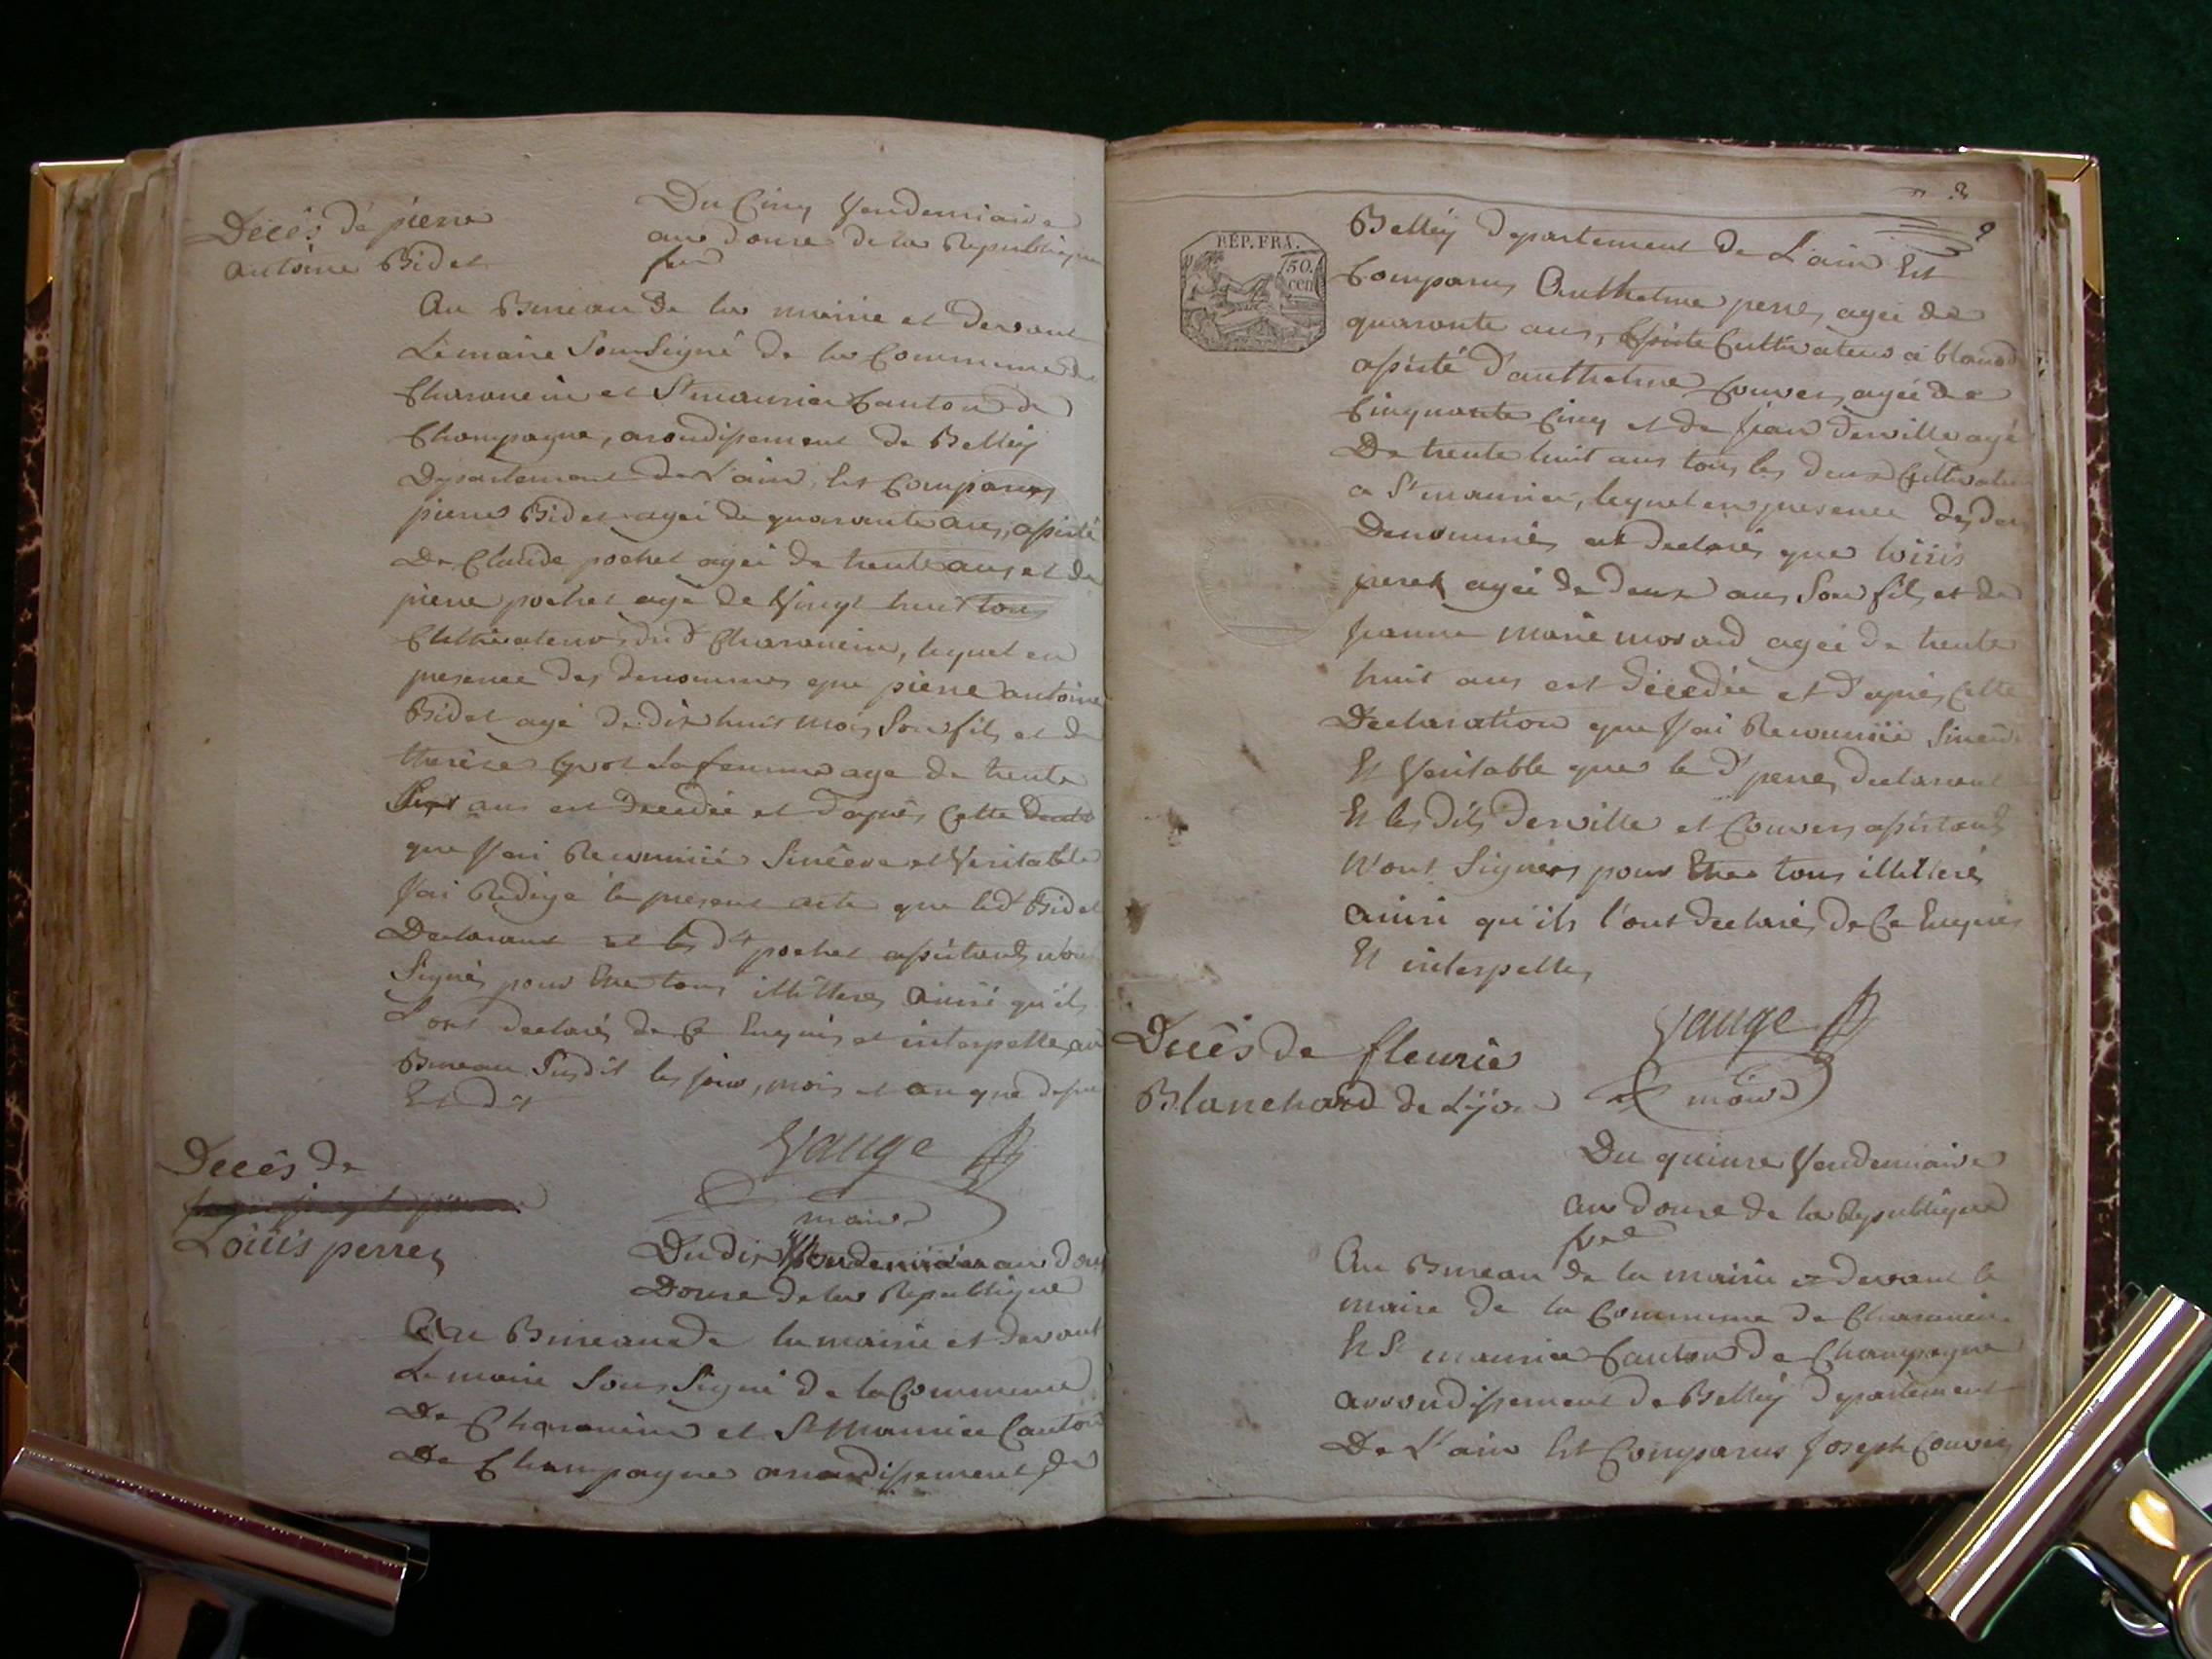 Décès de pierre
antoine Bidet
Du Cinq Vendemiaire
an douze de la Republique
Au Bureau de la mairie et devant
Lemaire Sousigné de la Commune de
Charancin et St maurice Canton de
Champagne, arondissement de Belleÿ
Departement de L'ain, Est Comparus
pierre Bidet ageé de quarante ans, assisté
De Claude pochet ageé de trente ans et de
pierre pochet agé de Vingt huit tous
Cultivateurs dud Charancin, lequel en
presence des denommes que pierre antoine
Bidet agé de dix huit mois, Son fils et de
therèse sa femme age de trente
ans est Decedée et d'après Cette
que J'ai Reconnüe Sincère et Veritable
J'ai Redigé le present acte que led Bidet
Declarant et les dt pochet assistants n'ont
Signés pour Etre tous illitteres, Ainsi qu'ils
L'ont declarés de Ce Enquis et interpellé, au
Bureau Susdit les jour, mois et an que dessus
Et dt
Vauge
maire
Décès de
Loüis perret
Du dix Vendemiaire an douze
Douze de la Republique
Au Bureau de la mairie et devant
Le maire Sous Signé de la Commune
De Charancin et St Maurice Canton
De Champagne arondissement de
2
RÉP. FRA.
50.
cen
Belleÿ departement de L'ain Est
Comparus Anthelme perret, ageé de
quarante ans, Cultivateur a
assisté d'anthelme Couvert, ageé de
Cinquante Cinq et de Jean Derville agé
De trente huit ans tous les deux Cultivateur
a St maurice, lequel en presence des
Denommés at declarés que loüis
perret ageé de deux ans Son fils et de
Jeanne Marie morard ageé de trente
huit ans est decedée et d'après, Cette
Declaration que J'ai Reconnüe Sincère
Et Veritable que le dt perret, declarant
Et les dits derville et Couvert, assistants
N'ont Signérs pour Etre tous illitterés
Ainsi qu'ils l'ont declarés, de Ce Enquis
Et interpellés
Vauge
maire
Decês de fleurie
Blanchard de Lÿon
Du quinze Vendemiaire
an douze de la Republique
Au Bureau de la mairie et devant le
maire de la Commune de Charancin
Et St maurice Canton de Champagne
arrondissement de Belleÿ departement
De L'ain Est Comparus Joseph Couvert